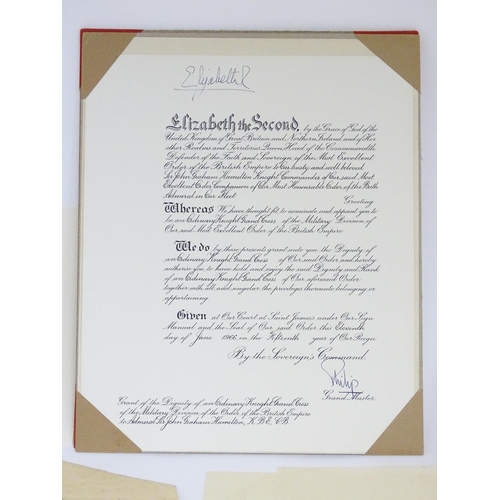 Elizabeth R
Elizabeth the Second, by the Grace of God of the
United Kingdom of Great Britain and Northern Ireland and of Her
other Realms and Territories Queen Head of the Commonwealth
Defender of the Faith and Sovereign of the Most Excellent
Order of the British Empire to Our trusty and well beloved
Sir John Graham Hamilton Knight Commander of Our said Most
Excellent Order Companion of Our Most Honourable Order of the Bath
Admiral in Our Fleet
Greeting
Whereas We have thought fit to nominate and appoint you to
be an Ordinary Knight Grand Cross of the Military Division of
Our said Most Excellent Order of the British Empire
We do by these presents grant unto you the Dignity of
an Ordinary Knight Grand Cross of Our said Order and hereby
authorise you to have hold and enjoy the said Dignity and Rank
of an Ordinary Knight Grand Cross of Our aforesaid Order
together with all and singular the privileges thereunto belonging or
appertaining.
Given at Our Court at Saint James's under Our Sign
Manual and the Seal of Our said Order this Eleventh
day of June 1966 in the Fifteenth year of Our Reign.
By the Sovereign's Command.
Philip
Grand Master.
Grant of the Dignity of an Ordinary Knight Grand Cross
of the Military Division of the Order of the British Empire
to Admiral Sir John Graham Hamilton, K.B.E., C.B.